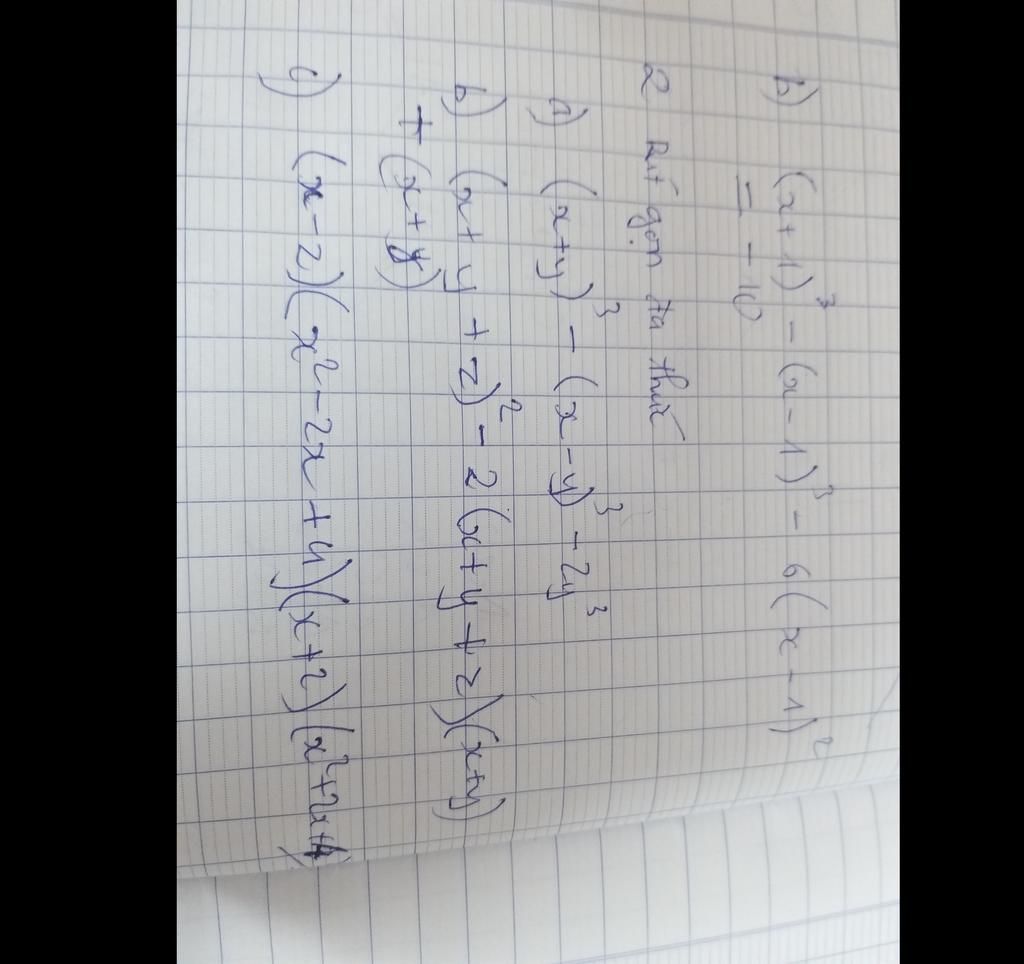 b) (x+1)³ - (x-1)³ - 6(x-1)²
= -10
2 Rút gọn đa thức
a) (x+y)³ - (x-y)³ - 2y³
b) (x+y+z)² - 2(x+y+z)(x+y)
+ (x+y)
c) (x-2)(x²-2x+4)(x+2)(x²+2x+4)